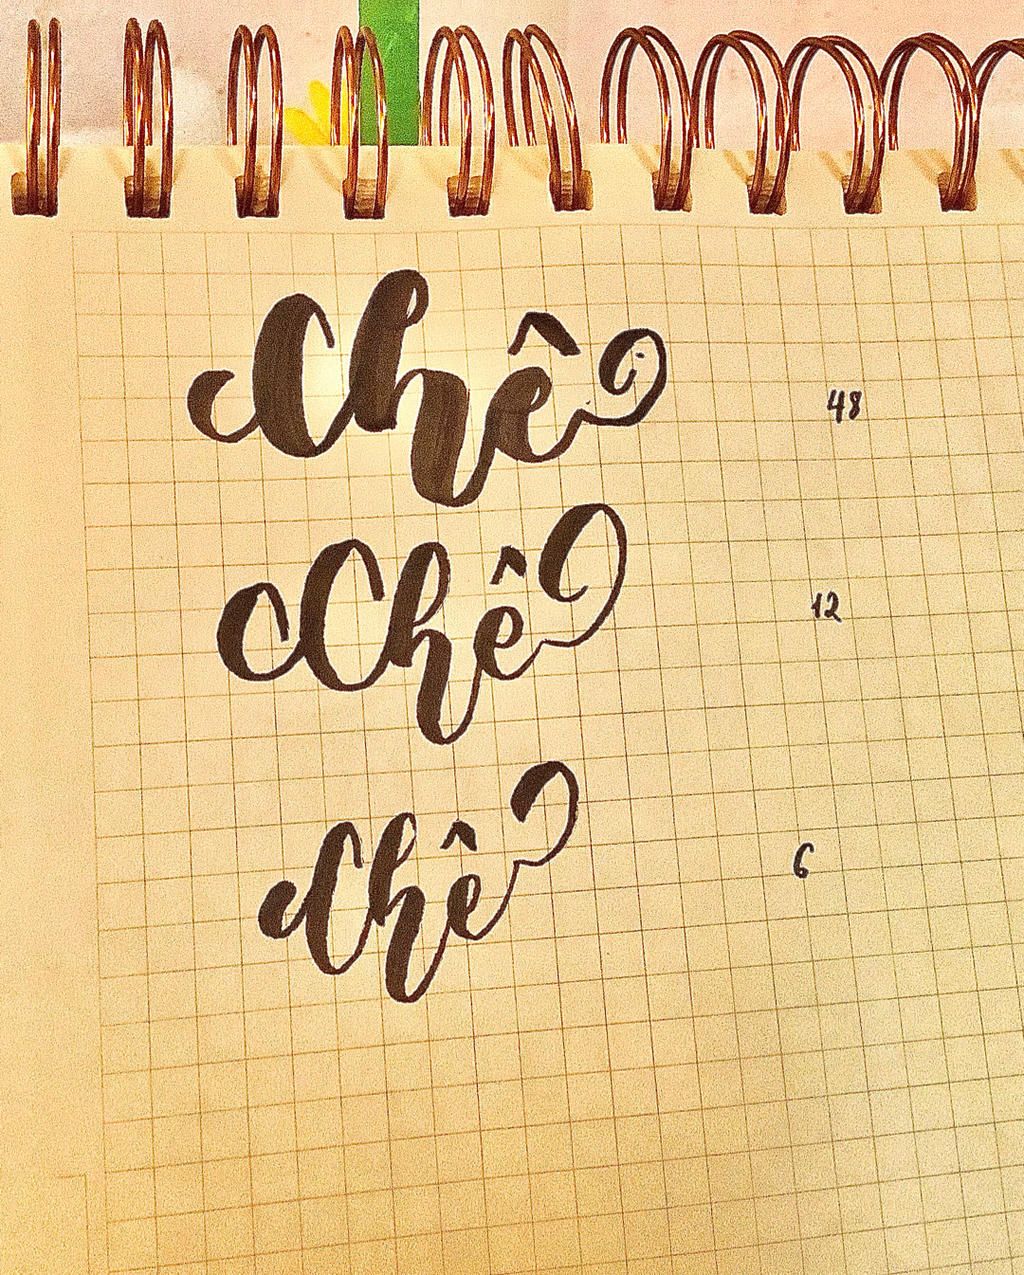 Chê 48
Chê 12
Chê 6